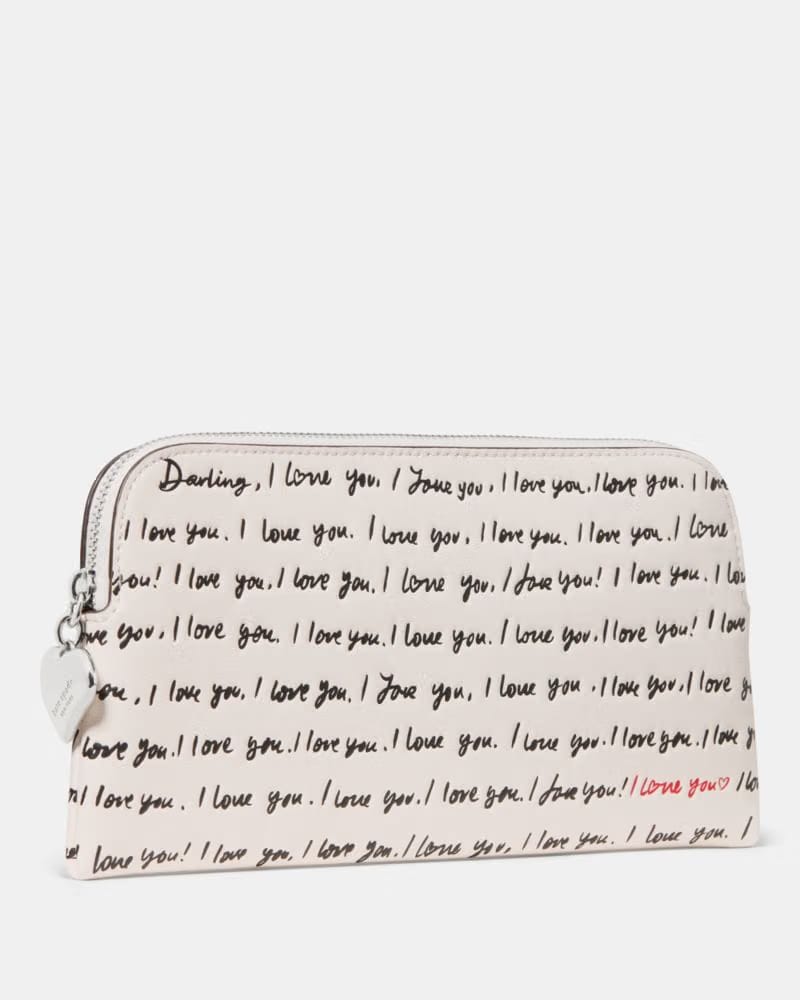 Darling, I love you. I love you. I love you. I love you. I
I love you. I love you. I love you. I love you. I love you. I love
you! I love you. I love you. I love you. I love you! I love you. I
you. I love you. I love you. I love you. I love you. I love you! I love
I love you. I love you. I love you, I love you. I love you. I love
I love you. I love you. I love you. I love you. I love you. I love you. I love
I love you. I love you. I love you. I love you. I love you! I love you♡ I
love you! I love you. I love you. I love you, I love you. I love you. I
kate spade
NEW YORK